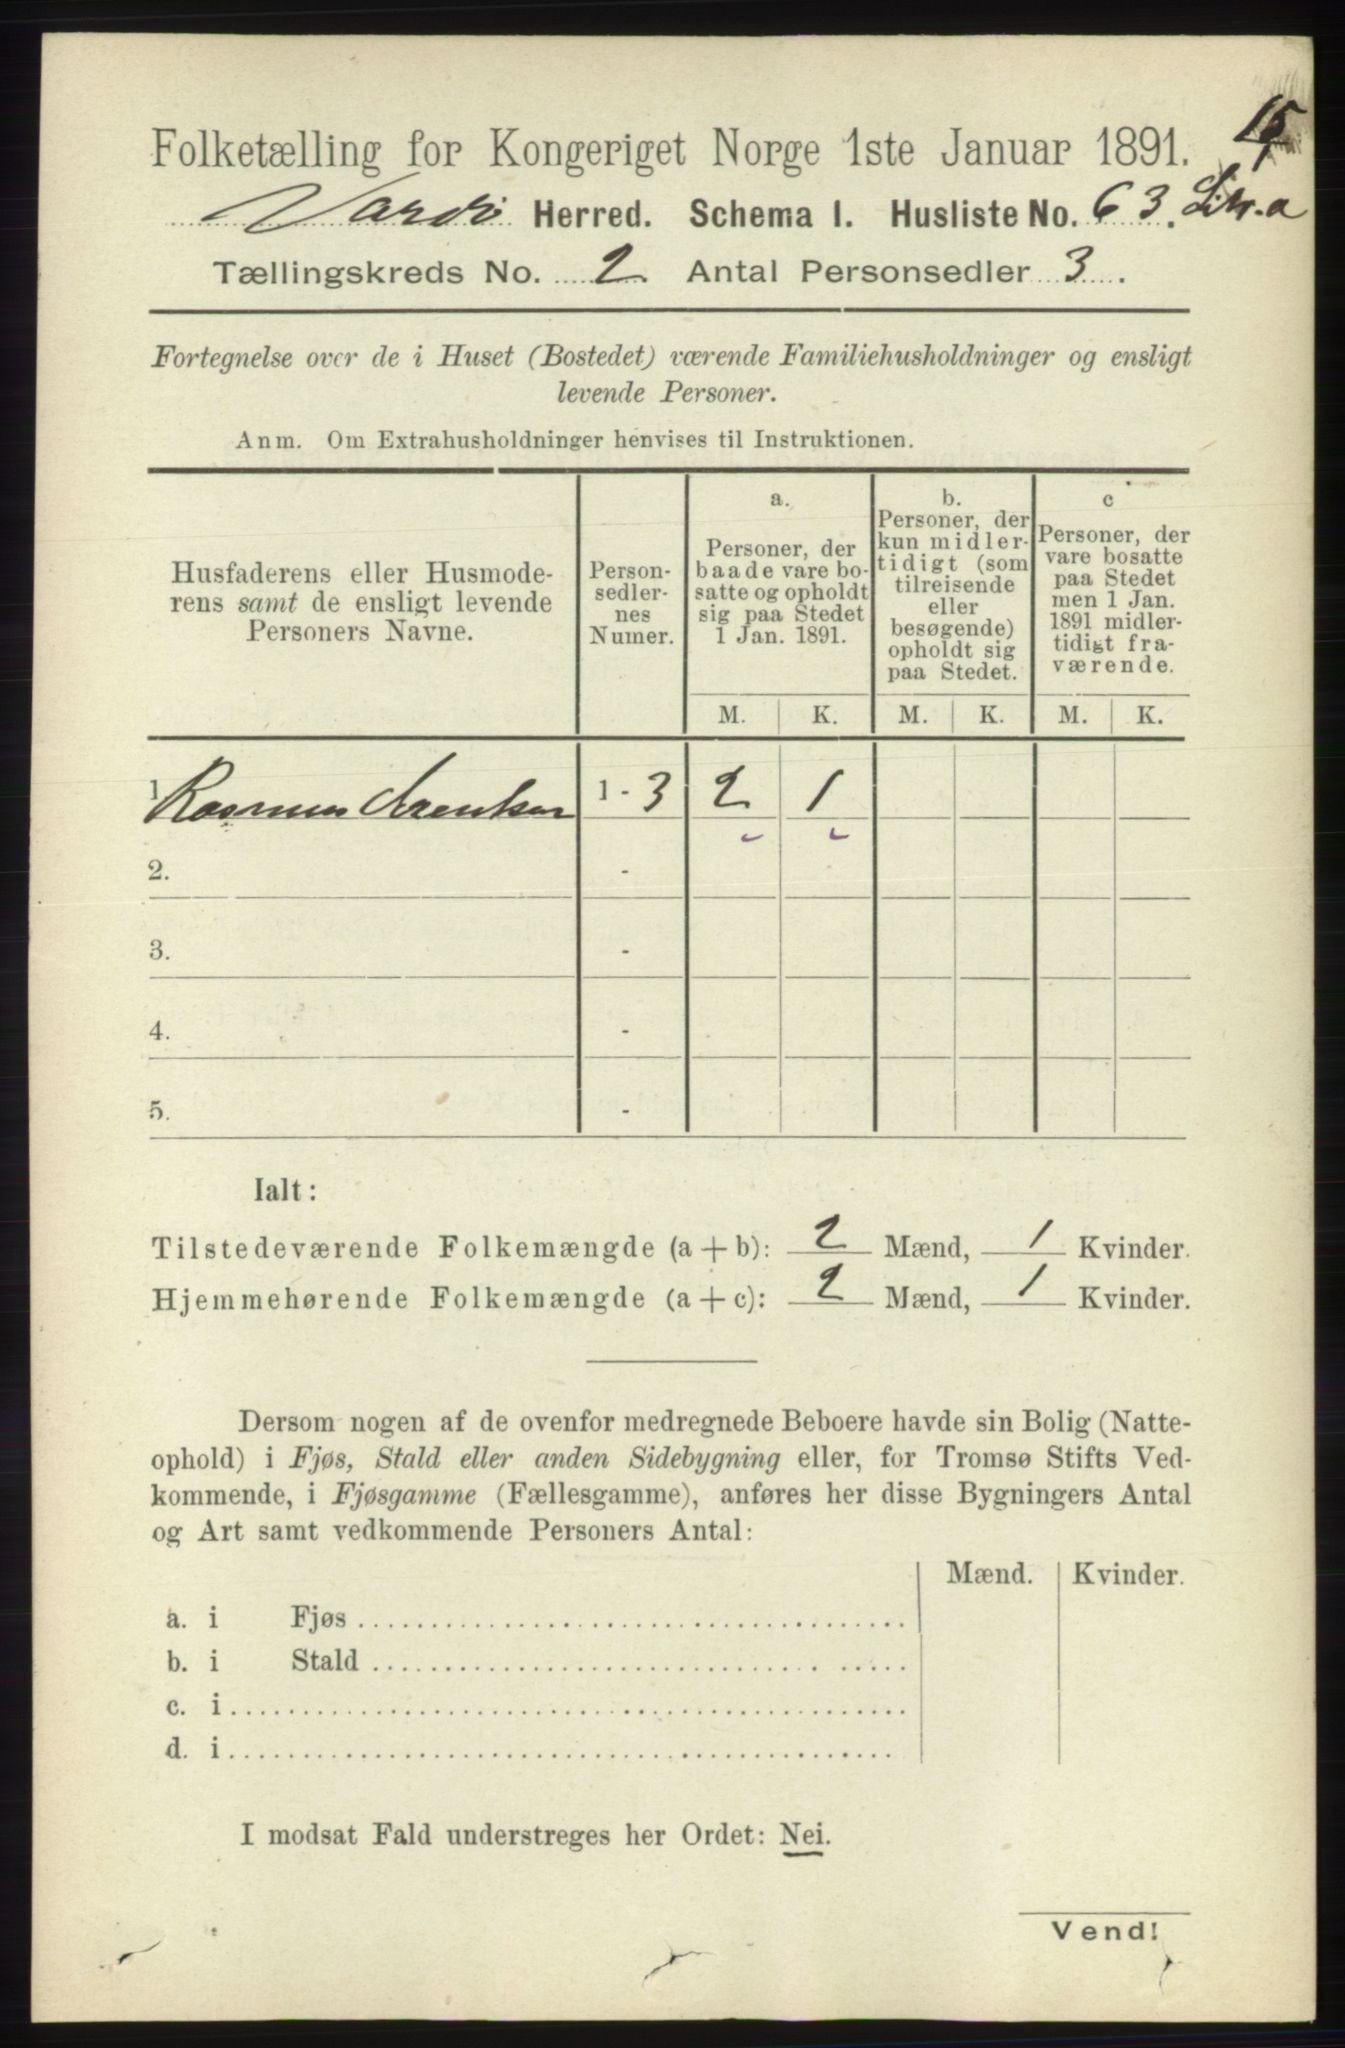 15
Folketælling for Kongeriget Norge 1ste Januar 1891.
Vardø Herred. Schema I. Husliste No. 63. Litr. a
Tællingskreds No. 2 Antal Personsedler 3.
Fortegnelse over de i Huset (Bostedet) værende Familiehusholdninger og ensligt
levende Personer.
Anm. Om Extrahusholdninger henvises til Instruktionen.
Husfaderens eller Husmode-
rens samt de ensligt levende
Personers Navne.
Person-
sedler-
nes
Numer.
a.
Personer, der
baade vare bo-
satte og opholdt
sig paa Stedet
1 Jan. 1891.
b.
Personer, der
kun midler-
tidigt (som
tilreisende
eller
besøgende)
opholdt sig
paa Stedet.
c
Personer, der
vare bosatte
paa Stedet
men 1 Jan.
1891 midler-
tidigt fra-
værende.
M. K. M. K. M. K.
1 Rasmus Arentsen 1 - 3 2 1
2. -
3. -
4. -
5. -
Ialt:
Tilstedeværende Folkemængde (a + b): 2 Mænd, 1 Kvinder.
Hjemmehørende Folkemængde (a + c): 2 Mænd, 1 Kvinder.
Dersom nogen af de ovenfor medregnede Beboere havde sin Bolig (Natte-
ophold) i Fjøs, Stald eller anden Sidebygning eller, for Tromsø Stifts Ved-
kommende, i Fjøsgamme (Fællesgamme), anføres her disse Bygningers Antal
og Art samt vedkommende Personers Antal:
Mænd. Kvinder.
a. i Fjøs
b. i Stald
c. i
d. i
I modsat Fald understreges her Ordet: Nei.
Vend!